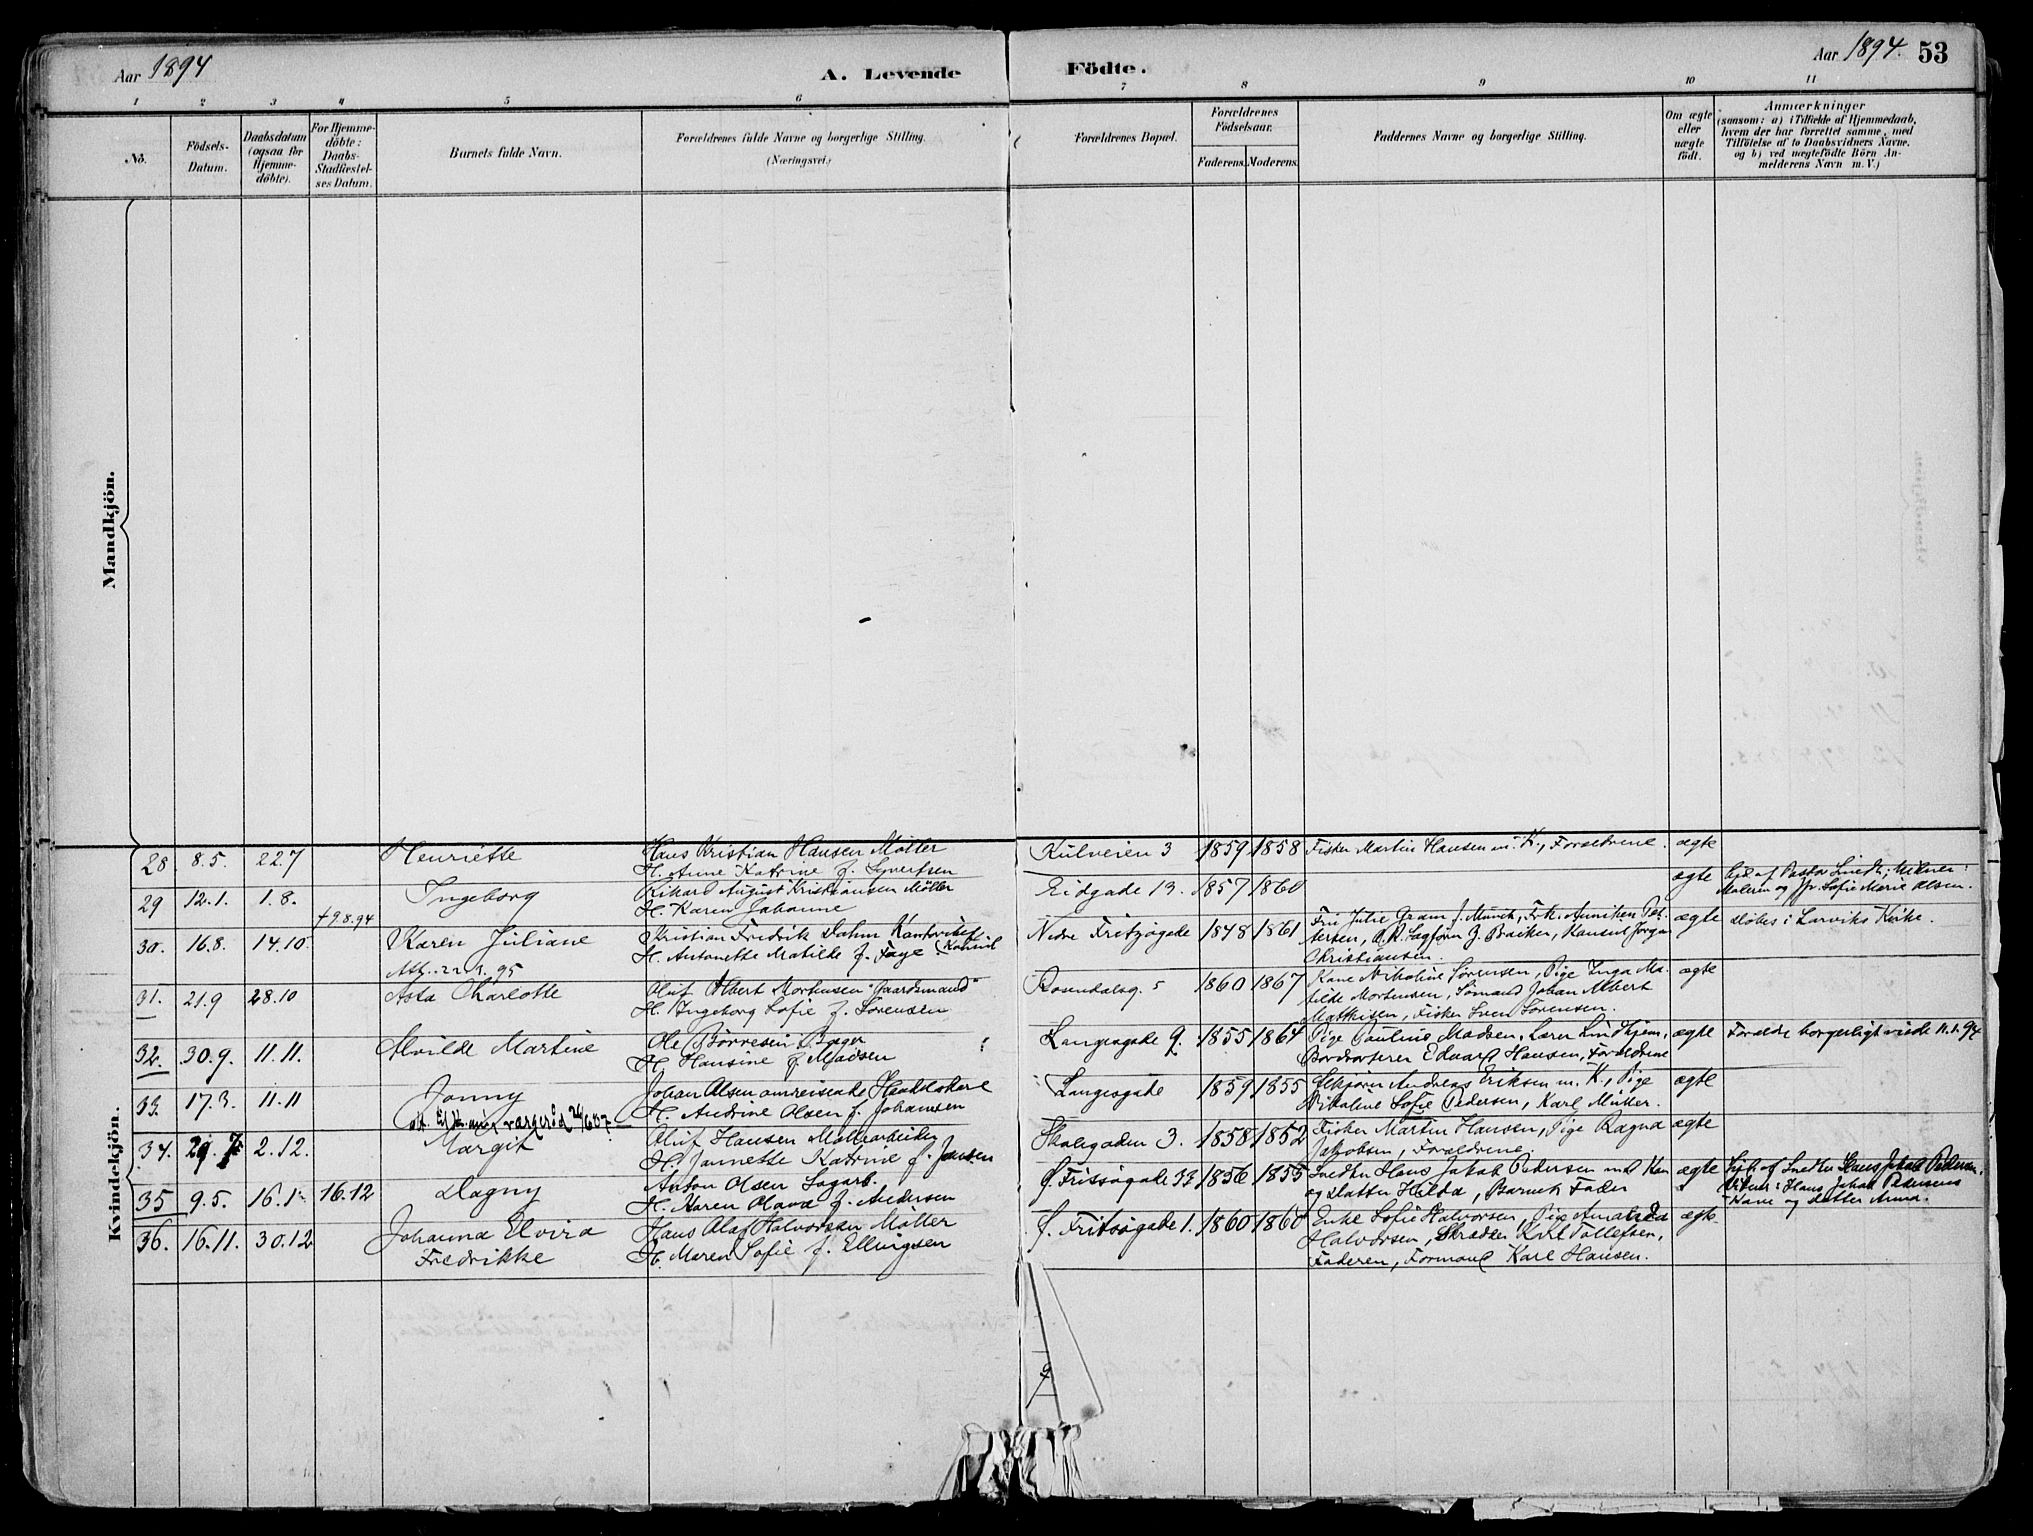 Aar 1894
A. Levende Födte.
Aar 1894. 53
1 2 3 4 5 6 7 8 9 10 11
No.
Födsels-
Datum.
Daabsdatum
(ogsaa for
Hjemme-
döbte).
For Hjemme-
döbte:
Daabs-
Stadfæstel-
ses Datum.
Barnets fulde Navn.
Forældrenes fulde Navne og borgerlige Stilling.
(Næringsvei.)
Forældrenes Bopæl.
Forældrenes
Födselsaar.
Faderens. Moderens.
Faddernes Navne og borgerlige Stilling.
Om ægte
eller
uægte
født.
Anmærkninger
(saasom: a) i Tilfælde af Hjemmedaab,
hvem der har forrettet samme, med
Tilföielse af to Daabsvidners Navne.
og b) ved uægtefödte Börn An-
melderens Navn m. V.)
Mandkjön.
Kvindekjön.
28 8.5. 22.7 Henriette
Hans Kristian Hansen Møller
H. Anne Katrine f. Syvertsen
Kulveien 3 1859 1858
Fisker Martin Hansen m. K., Forældrene.
ægte
29 12.1. 1.8. Ingeborg
† 9.8.94
Rikard August Kristiansen Møller
H. Karen Johanne
Eidgade 13. 1857 1860
ægte
Hjd. af Pastor Lindh; Vidner:
Malerm og Jfr. Sofie Marie Olsen.
30. 16.8. 14.10. Karen Juliane
Kristian Fredrik Dahm
H. Antonette Matilde f. Faye
Nedre Fritzøgade 1848 1861
Fru Julie Gram f. Munch, Frk. Anniken Pet-
tersen, O. R. Sagfører J. Bacher, Konsul Jørgen
Christiansen.
ægte
døbes i Larviks Kirke.
31. 21.9 28.10 Asta Charlotte
Oluf Albert Mortensen Gaardsmand
H. Ingeborg Sofie f. Sørensen
Rosendalsg. 5 1860 1867
Kone Nikoline Sørensen, Pige Inga Ma-
tilde Mortensen, Sømand Johan Albert
Mathisen, Fisker Sven Sørensen.
ægte
32. 30.9. 11.11. Alvilde Martine
Ole Børresen Bager
H. Hansine f. Madsen
Langesgade 9. 1855 1864
Pige Pauline Madsen, Lærer Lindhjem,
Bordsorterer Edvard Hansen, Forældrene
ægte
Forældre borgerligt viede 11.1.94
33. 17.3. 11.11 Jonny
Johan Olsen omreisende Handelskarl
H. Andrine Olsen f. Johansen
Langesgade 1859 1855
Andreas Eriksen m. K., Pige
Nikoline Sofie Pedersen, Karl Müller.
ægte
34. 29. 2.12. Margit
Oluf Hansen Møllearbeider
H. Jannette Katrine f. Jansen
Skolegaden 3. 1858 1852
Fisker Martin Hansen, Pige Ragna
Jakobsen, Forældrene.
ægte
35 9.5. 16.12 Dagny
Anton Olsen Sagarb.
H. Karen Olava f. Andersen
1856 1855
Snedker Hans Jakob Pedersen med Kone
og Datter Hilda, Barnets Fader
ægte
Hjd. af Snedker Hans Jakob Pedersen.
Vidner: Hans Jakob Pedersens
Kone og datter Anna.
36. 16.11. 30.12 Johanna Elvira
Fredrikke
Hans Olaf Halvorsen Møller
H. Maren Sofie f. Ellingsen
Fritsøgade 1. 1860 1860
Enke Sofie Halvorsen, Pige Amanda
Halvorsen, Skrædder Karl Tollefsen,
Faderen, Formand Karl Hansen.
ægte